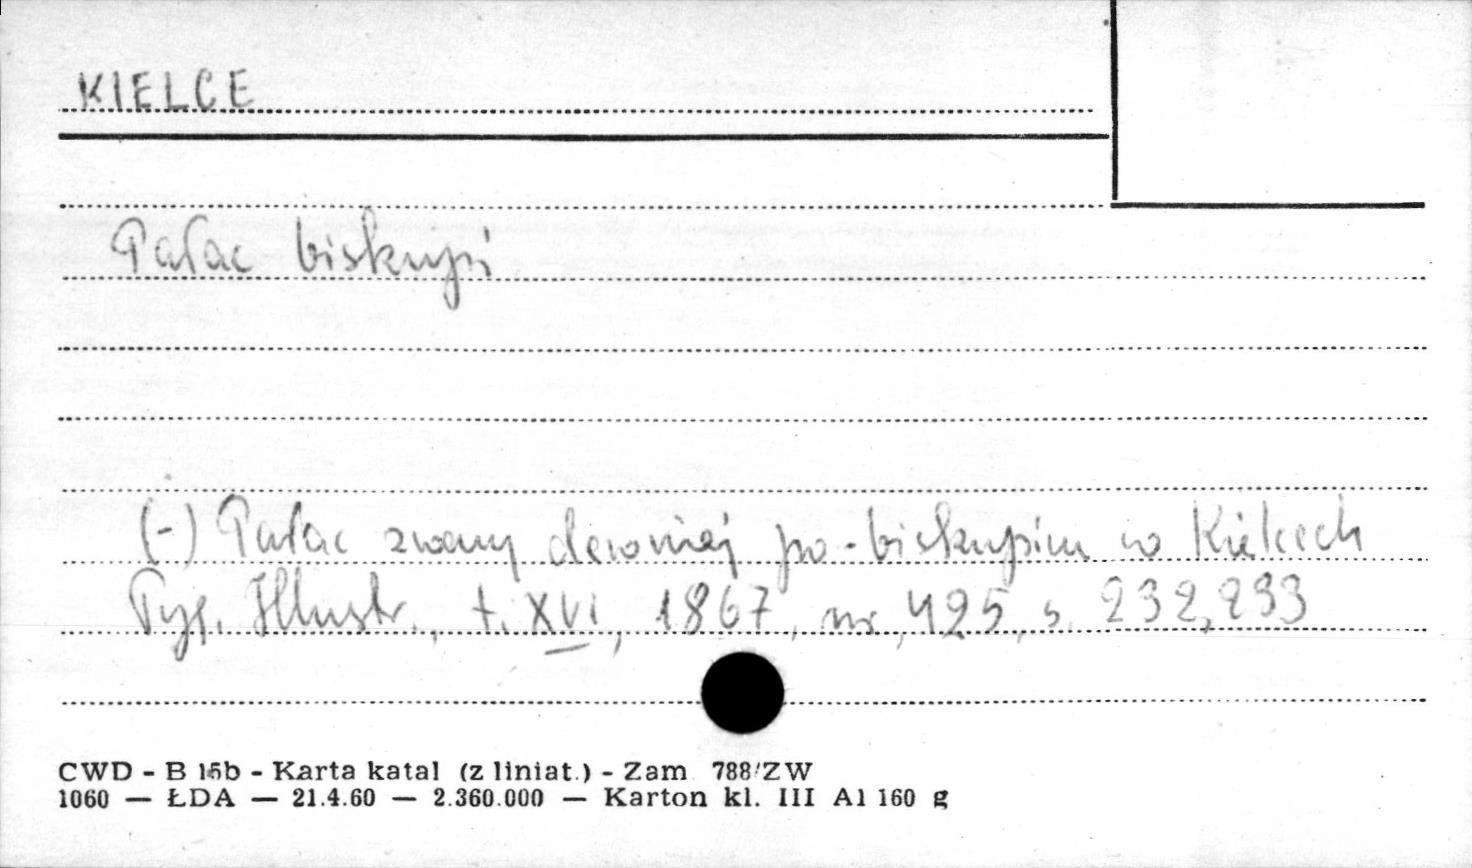 KIELCE
Pałac biskupi
(-) Pałac zwany dawniej po-biskupim w Kielcach
Tyg. Illustr., t. XVI, 1867, nr 425, s. 232,233
CWD - B 15b - Karta katal (z liniat.) - Zam 788/ZW
1060 — ŁDA — 21.4.60 — 2.360.000 — Karton kl. III A1 160 g